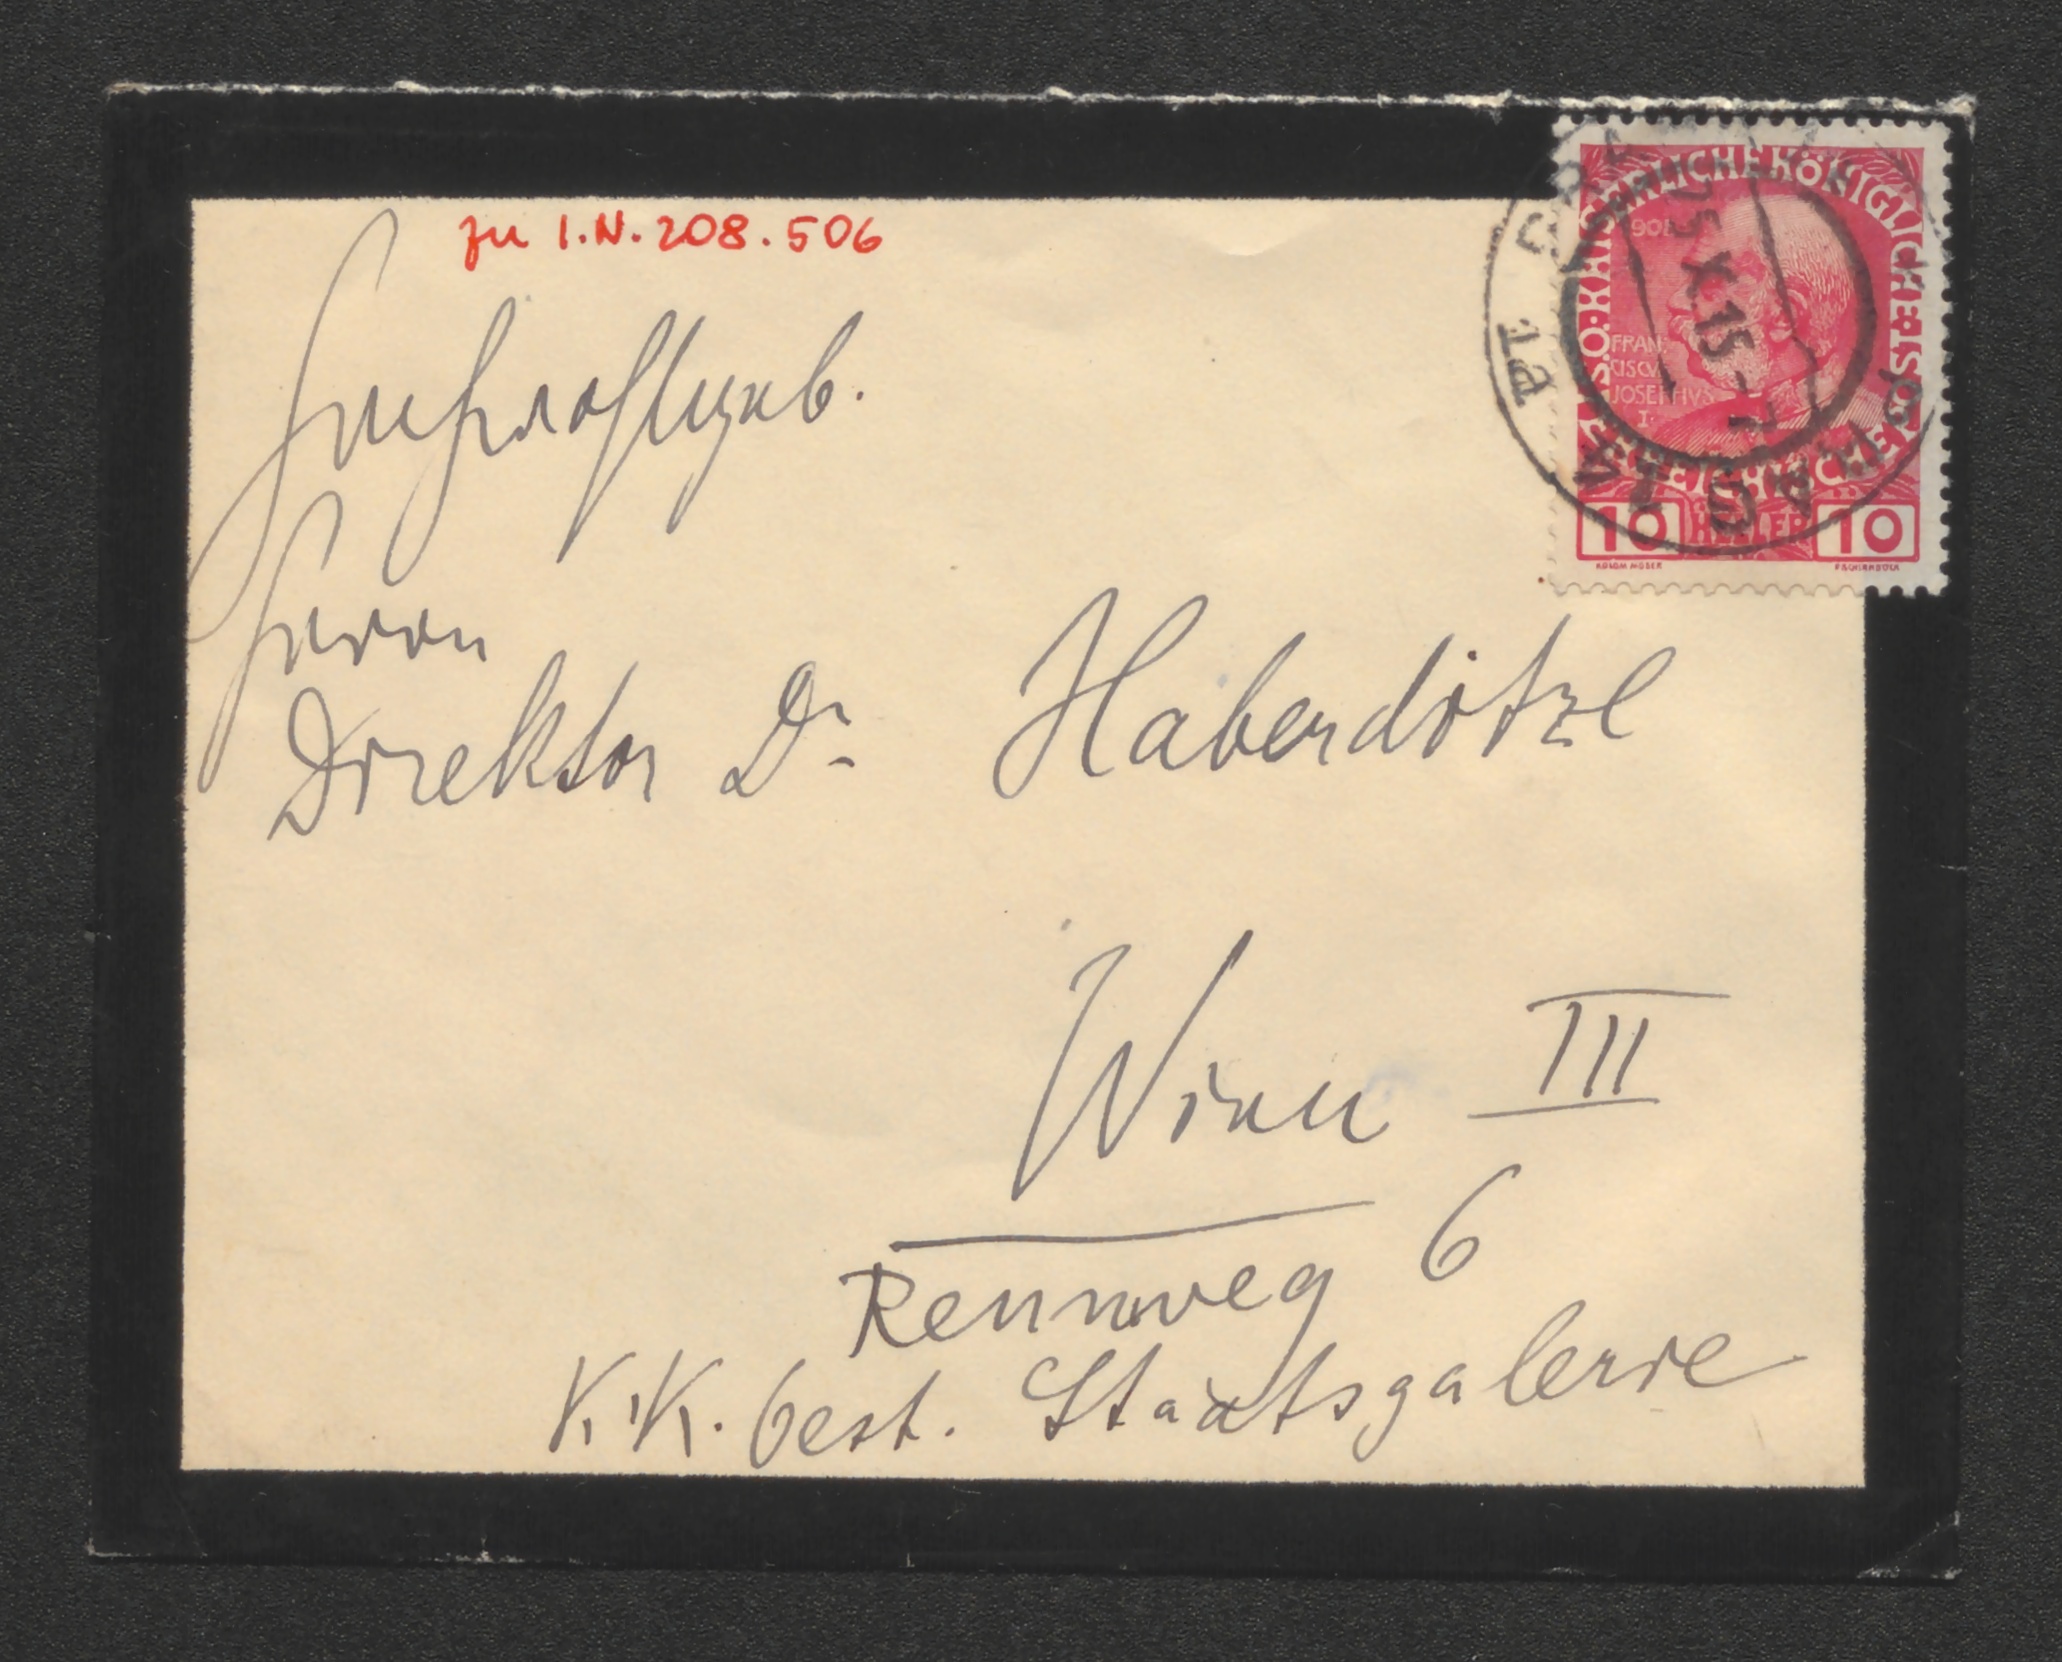 zu I.N. 208.506
Hochwohlgeb.
Herrn
Direktor Dr. Haberditzl
Wien III
Rennweg 6
K. K. öest. Staatsgalerie
KAISERLICHE KÖNIGLICHE ÖSTERREICHISCHE
1908
FRAN
CISCVS
JOSEPHVS
I.
10 HELLER 10
KOLOM. MOSER F. SCHIRNBÖCK
25 X 15 - 7
14